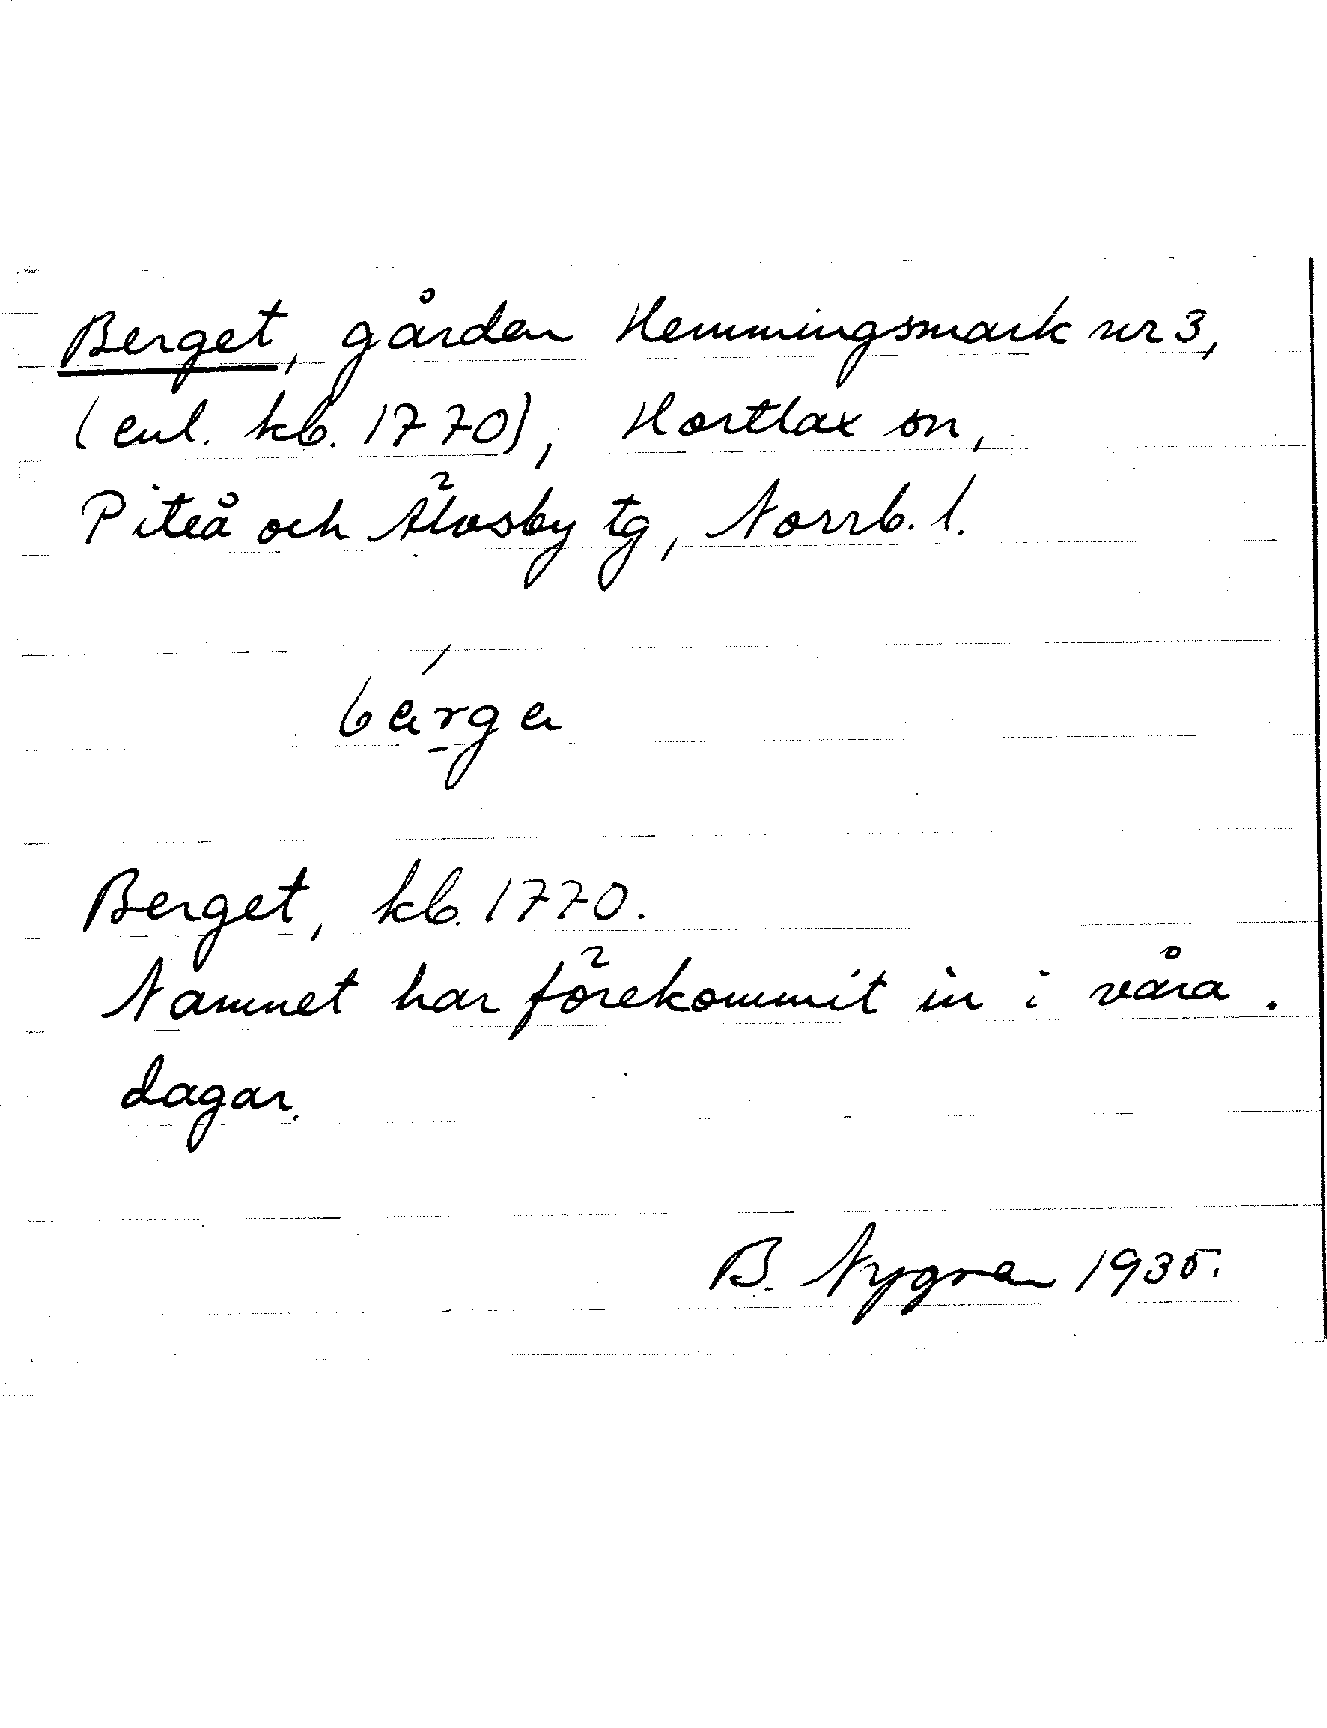 Berget, gården Hemmingsmark nr 3,
(enl. kb. 1770), Hortlax sn,
Piteå och Älvsby tg, Norrb. l.
bárga
Berget, kb. 1770.
Namnet har förekommit in i våra
dagar.
B. Nygren 1935.